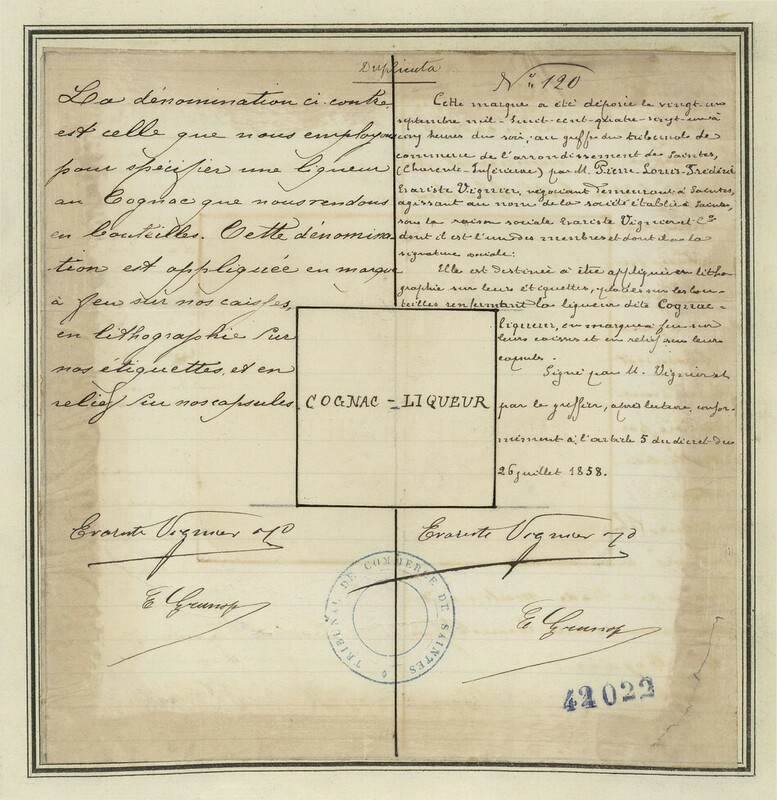 Duplicata
La dénomination ci-contre
est celle que nous employons
pour spécifier une liqueur
au Cognac que nous rendons
en bouteilles. Cette dénomina-
tion est appliquée en marque
à feu sur nos caisses,
en lithographie sur
nos étiquettes, et en
relief sur nos capsules.
Nº 120
Cette marque a été déposée le vingt un
septembre mil-huit-cent-quatre-vingt-un à
cinq heures du soir, au greffe du tribunal de
commerce de l'arrondissement de Saintes,
(Charente-Inférieure) par M. Pierre-Louis-Frédéric
Evariste Vignier, négociant demeurant à Saintes,
agissant au nom de la société établie à Saintes,
sous la raison sociale Evariste Vignier et Cie
dont il est l'un des membres et dont il a la
signature sociale:
Elle est destinée à être appliquée en litho-
graphie sur leurs étiquettes, placées sur les bou-
teilles renfermant la liqueur dite Cognac-
liqueur, en marque à feu sur
leurs caisses et en relief sur leurs
capsules.
Signé par M. Vignier et
par le greffier, après lecture, confor-
mément à l'article 5 du décret du
26 juillet 1858.
COGNAC-LIQUEUR
Evariste Vignier
Evariste Vignier
TRIBUNAL DE COMMERCE DE SAINTES
022